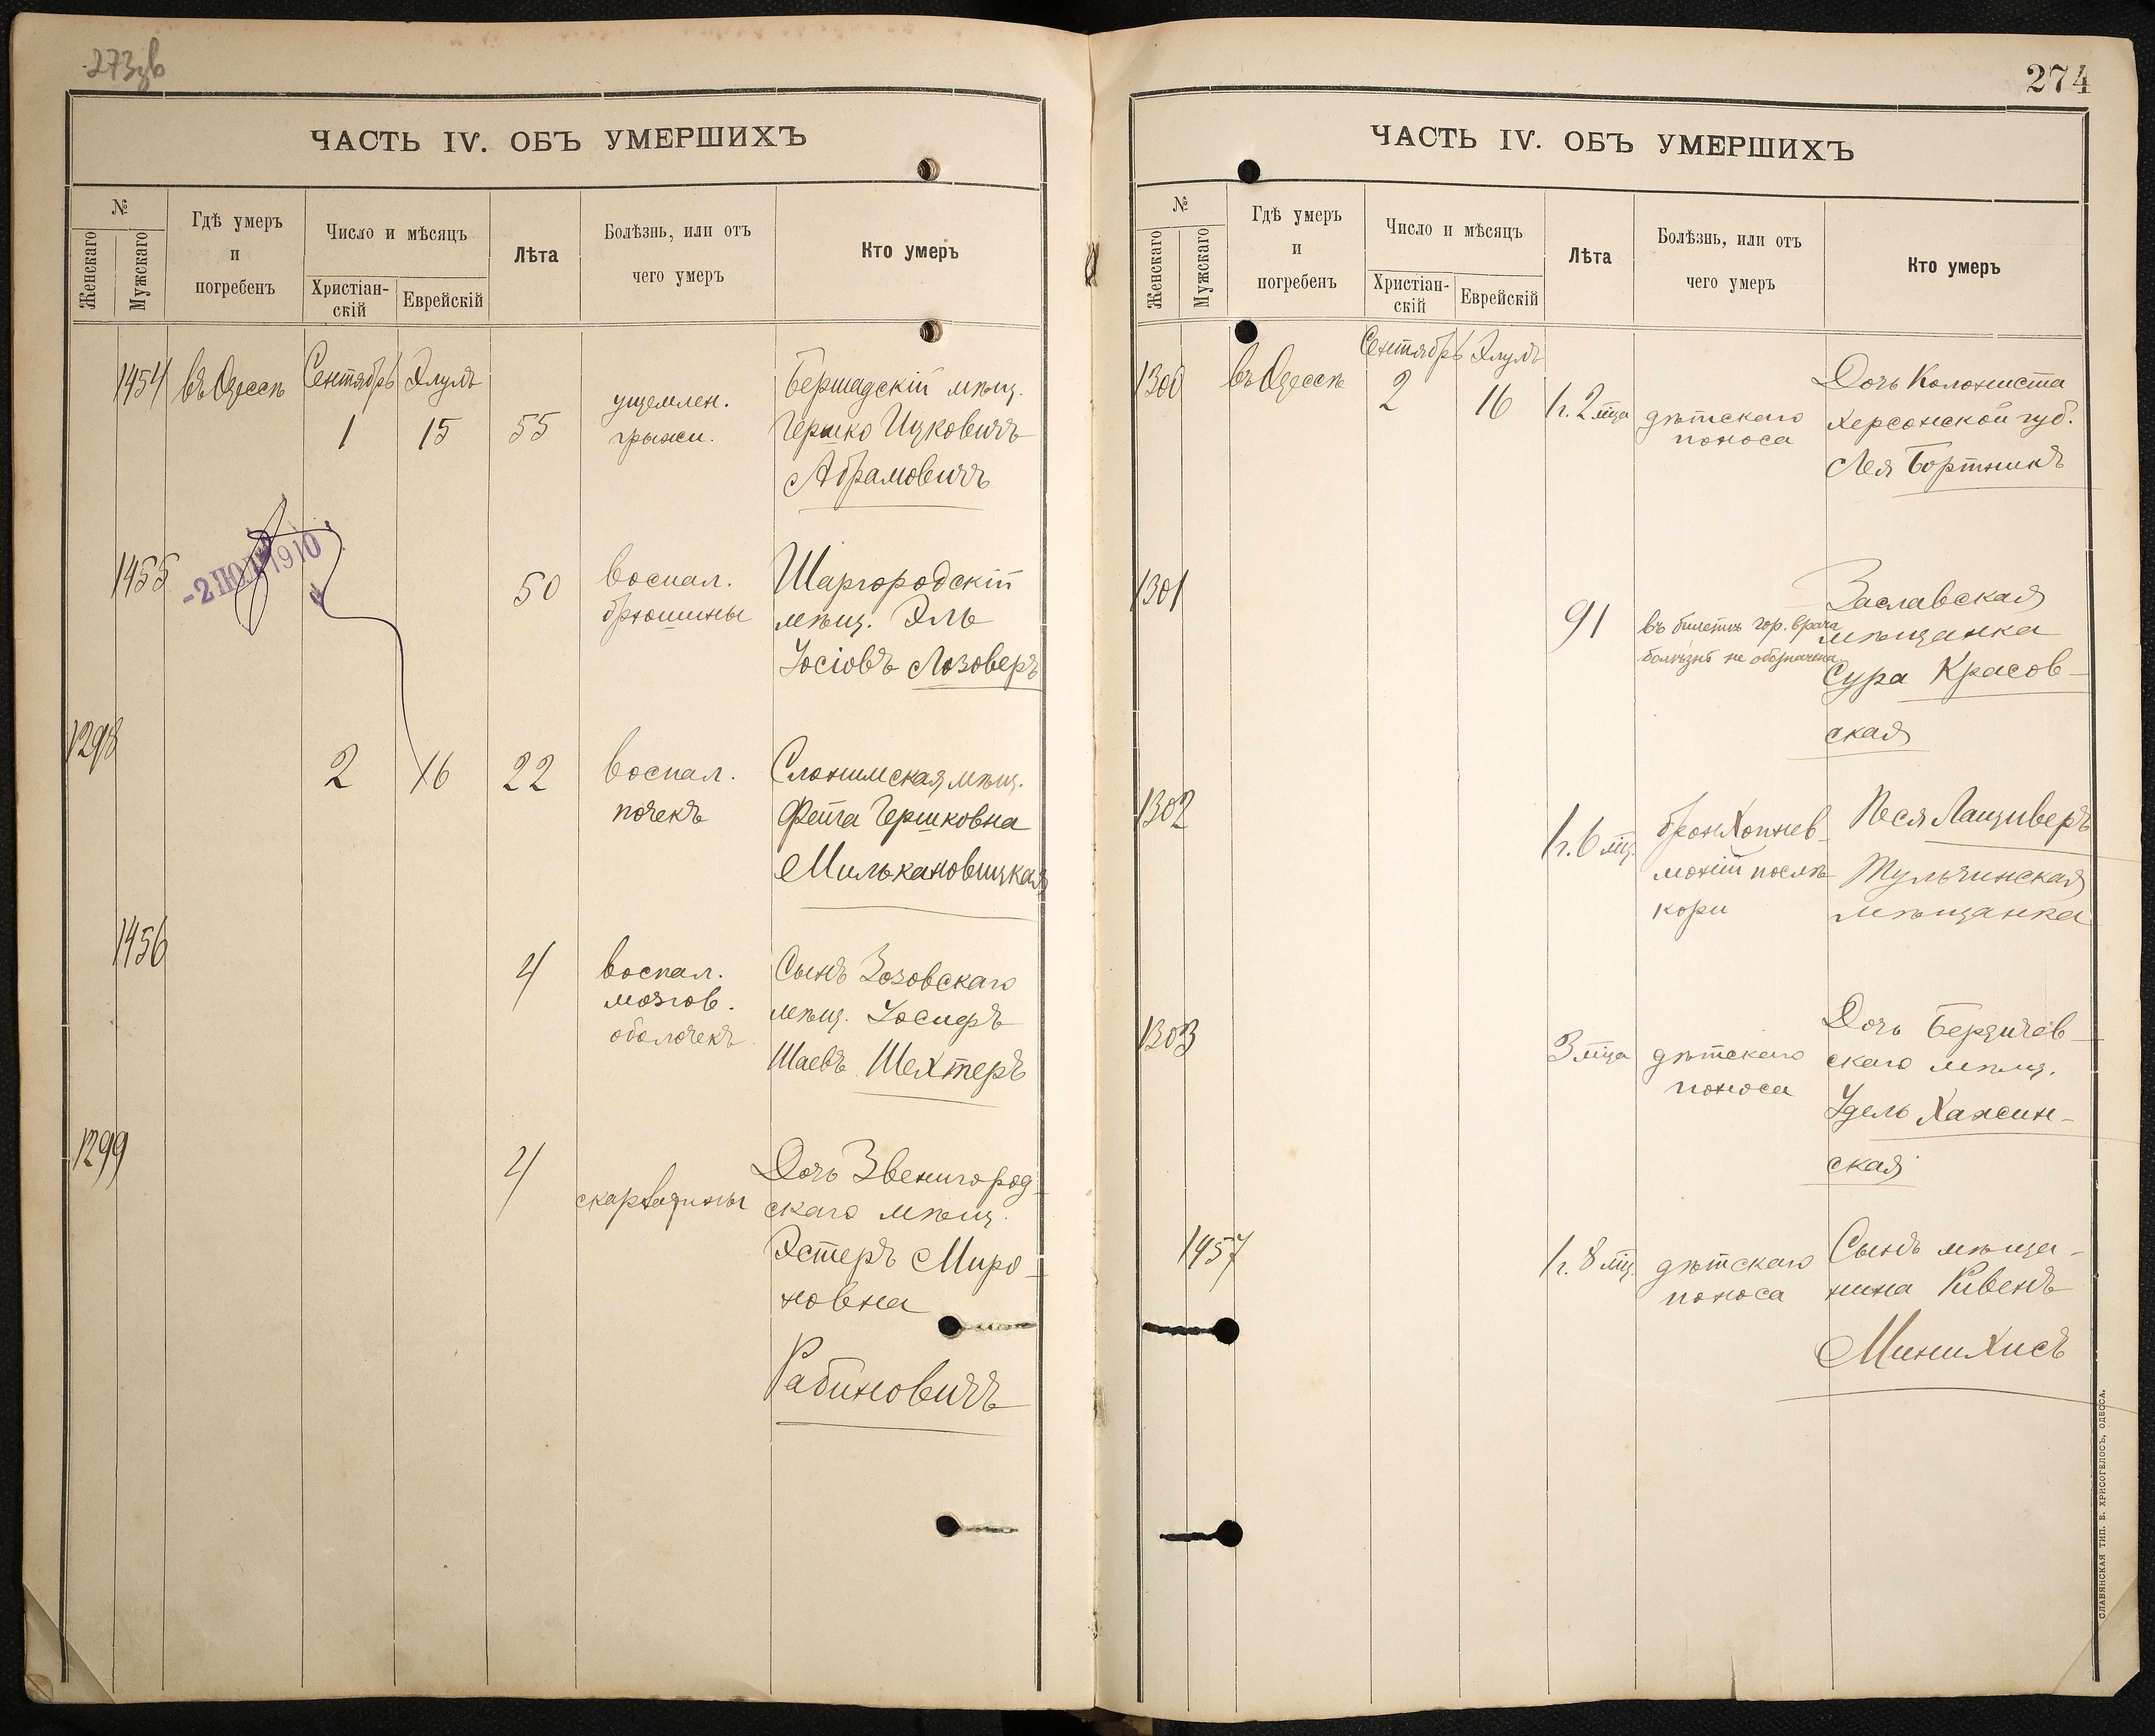 273об
ЧАСТЬ IV. ОБЪ УМЕРШИХЪ
№
Женскаго
Мужскаго
Гдѣ умеръ
и
погребенъ
Число и мѣсяцъ
Христіан-
скій
Еврейскій
Лѣта
Болѣзнь, или отъ
чего умеръ
Кто умеръ
1454 въ Одессѣ Сентябрь Элулъ
1 15 55
ущемлен.
грыжи.
Бершадскій мѣщ.
Гершко Ицковичъ
Абрамовичъ
-2 ІЮЛ 1910
1455
50
воспал.
брюшины
Шаргородскій
мѣщ. Эль
Іосіовъ Лозоверъ
1298
2 16 22
воспал.
почекъ
Слонимская мѣщ.
Фейга Гершковна
Милькановицкая
1456
4
воспал.
мозгов.
оболочекъ
Сынъ Зозовскаго
мѣщ. Іосифъ
Шаевъ Шехтеръ
1299
4
скарлатины
Дочь Звенигород-
скаго мѣщ.
Эстеръ Миро-
новна
Рабиновичъ
274
ЧАСТЬ IV. ОБЪ УМЕРШИХЪ
№
Женскаго
Мужскаго
Гдѣ умеръ
и
погребенъ
Число и мѣсяцъ
Христіан-
скій
Еврейскій
Лѣта
Болѣзнь, или отъ
чего умеръ
Кто умеръ
1300 въ Одессѣ Сентябрь Элулъ
2 16 1 г. 2 мца
дѣтскаго
поноса
Дочь Колониста
Херсонской губ.
Лея Бортникъ
1301
91
въ билетѣ гор. врача
болѣзнь не обозначена
Заславская
мѣщанка
Сура Красов-
ская
1302
1 г. 6 мц.
бронхопнев-
моніи послѣ
кори
Песя Ланциверъ
Тульчинская
мѣщанка
1303
3 мца
дѣтскаго
поноса
Дочь Бердичев-
скаго мѣщ.
Удель Хажин-
ская
1457
1 г. 8 мц.
дѣтскаго
поноса
Сынъ мѣща-
нина Рувенъ
Минихисъ
СЛАВЯНСКАЯ ТИП. Е. ХРИСОГЕЛОСЪ, ОДЕССА.